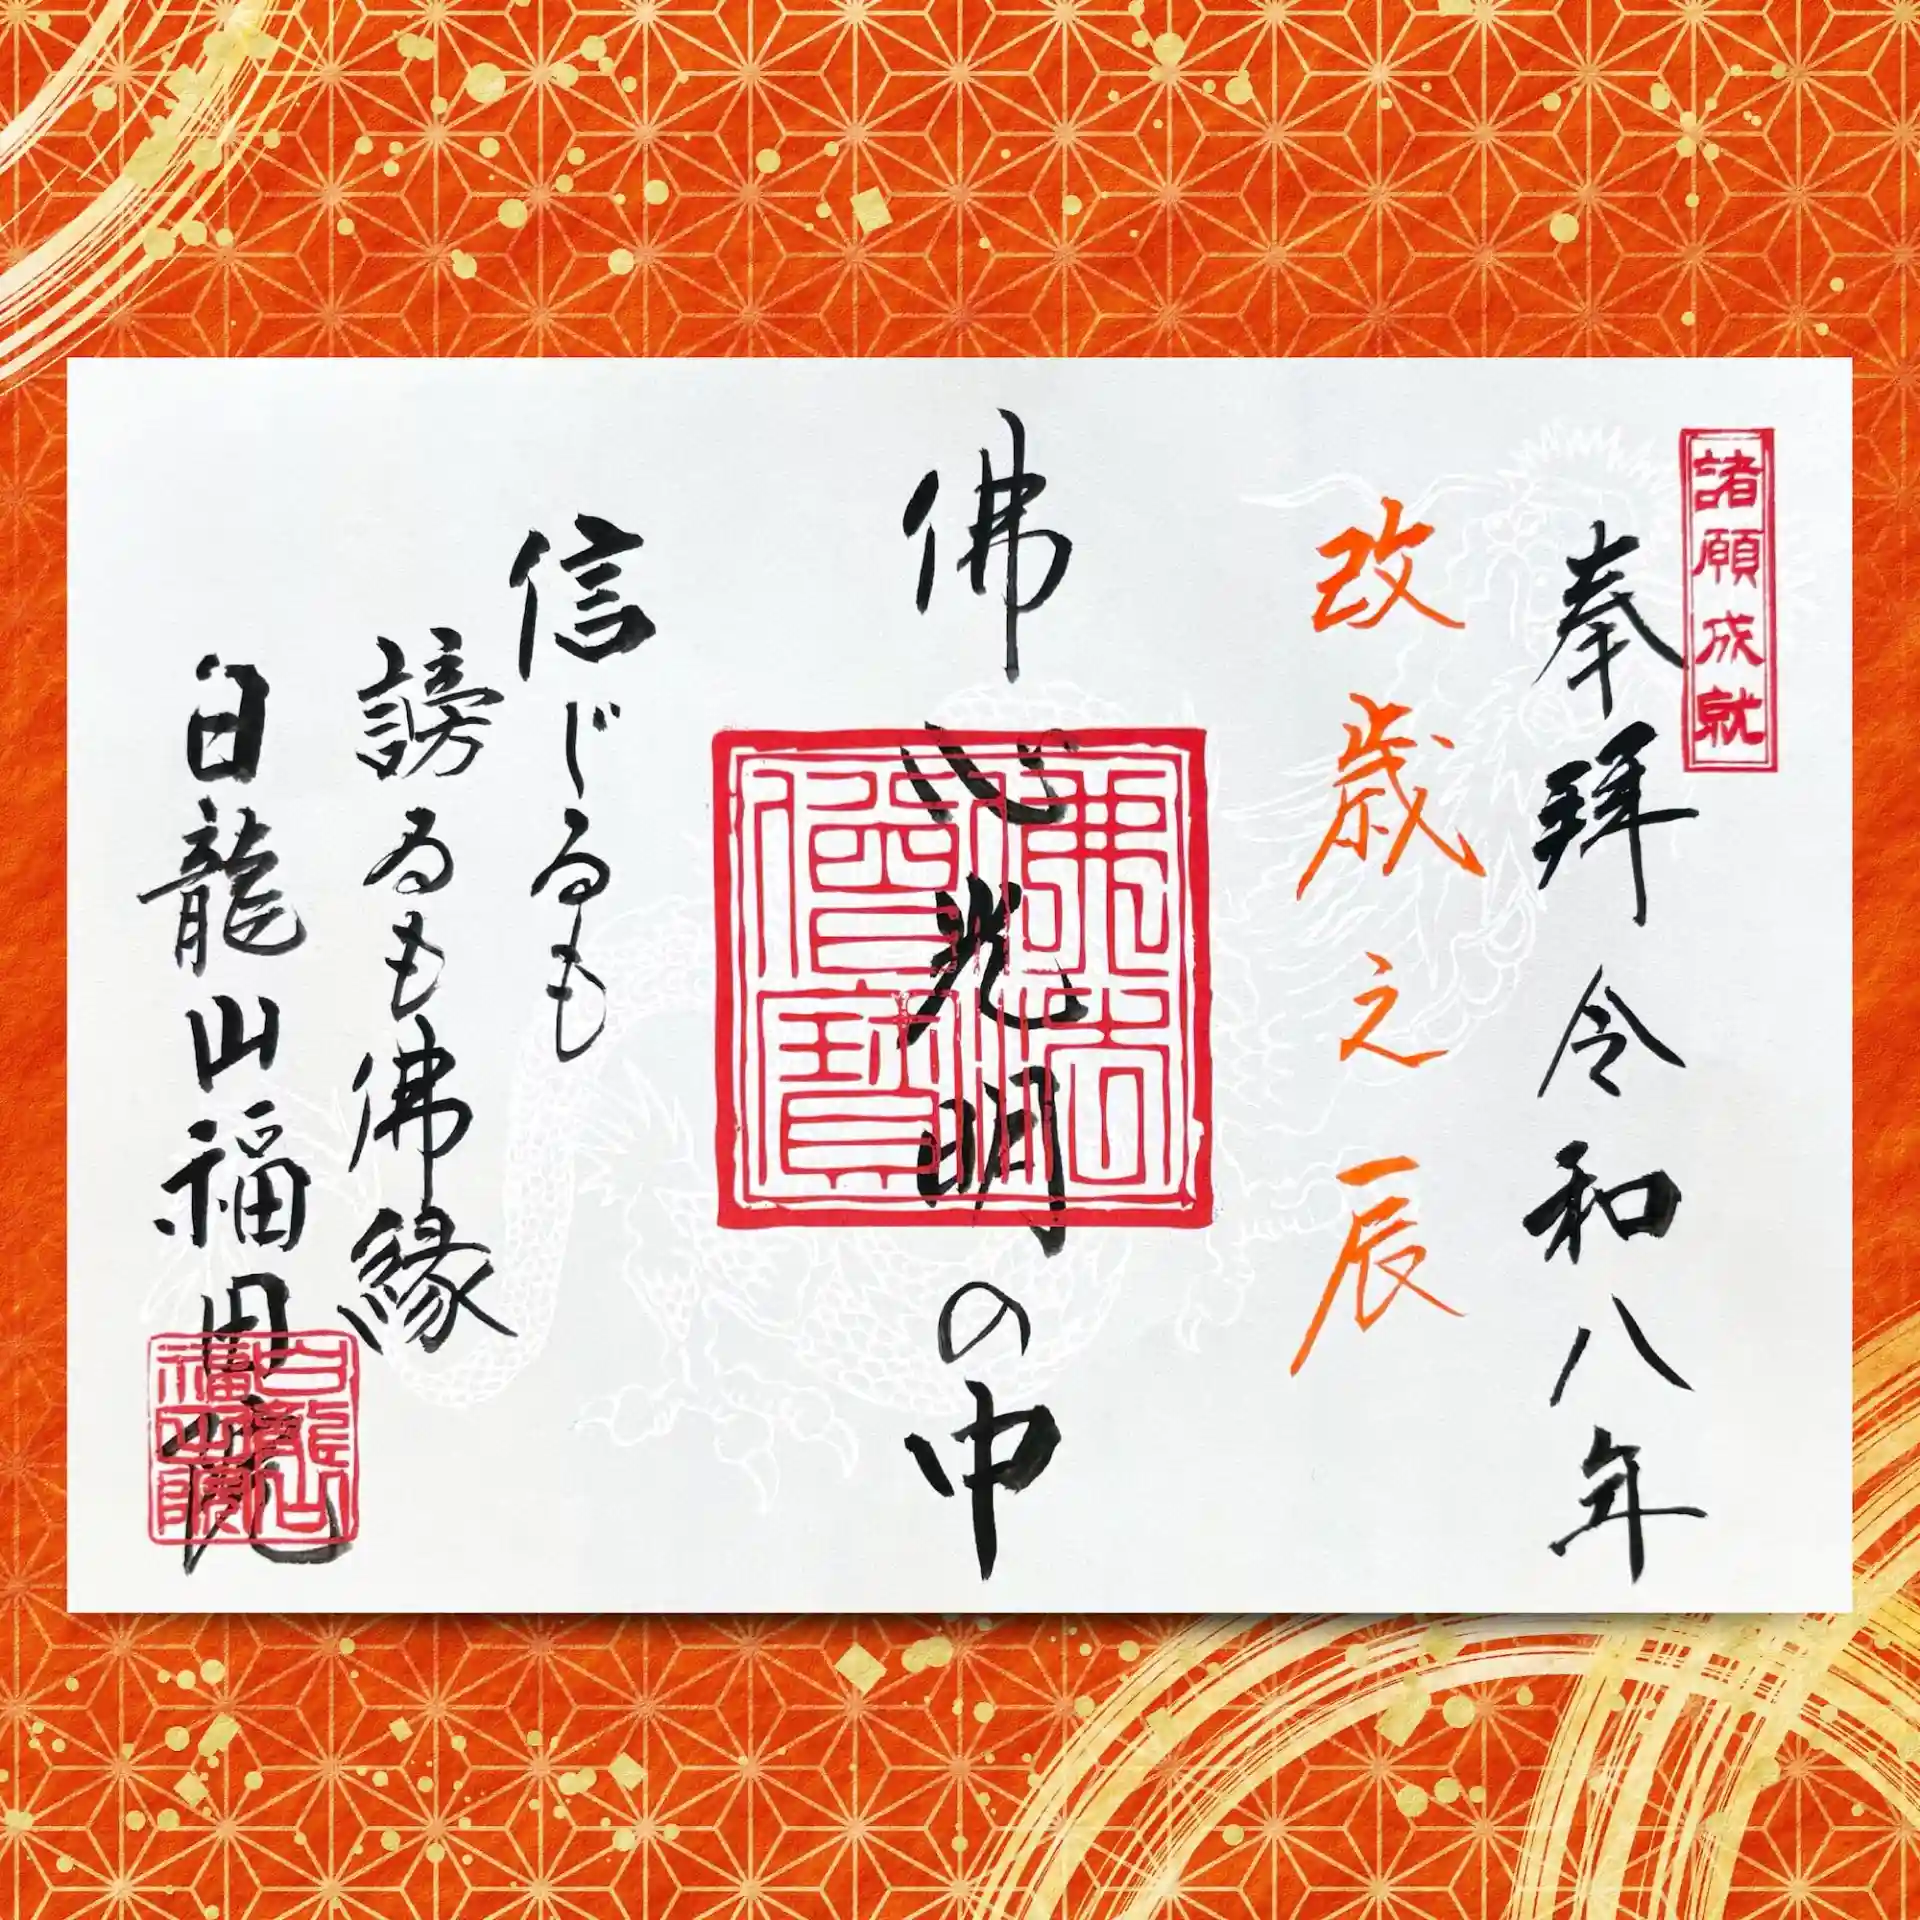 諸願成就
奉拝 令和八年
改歳之辰
佛心光明の中
佛法僧寶
信じるも
謗るも佛縁
白龍山福田院